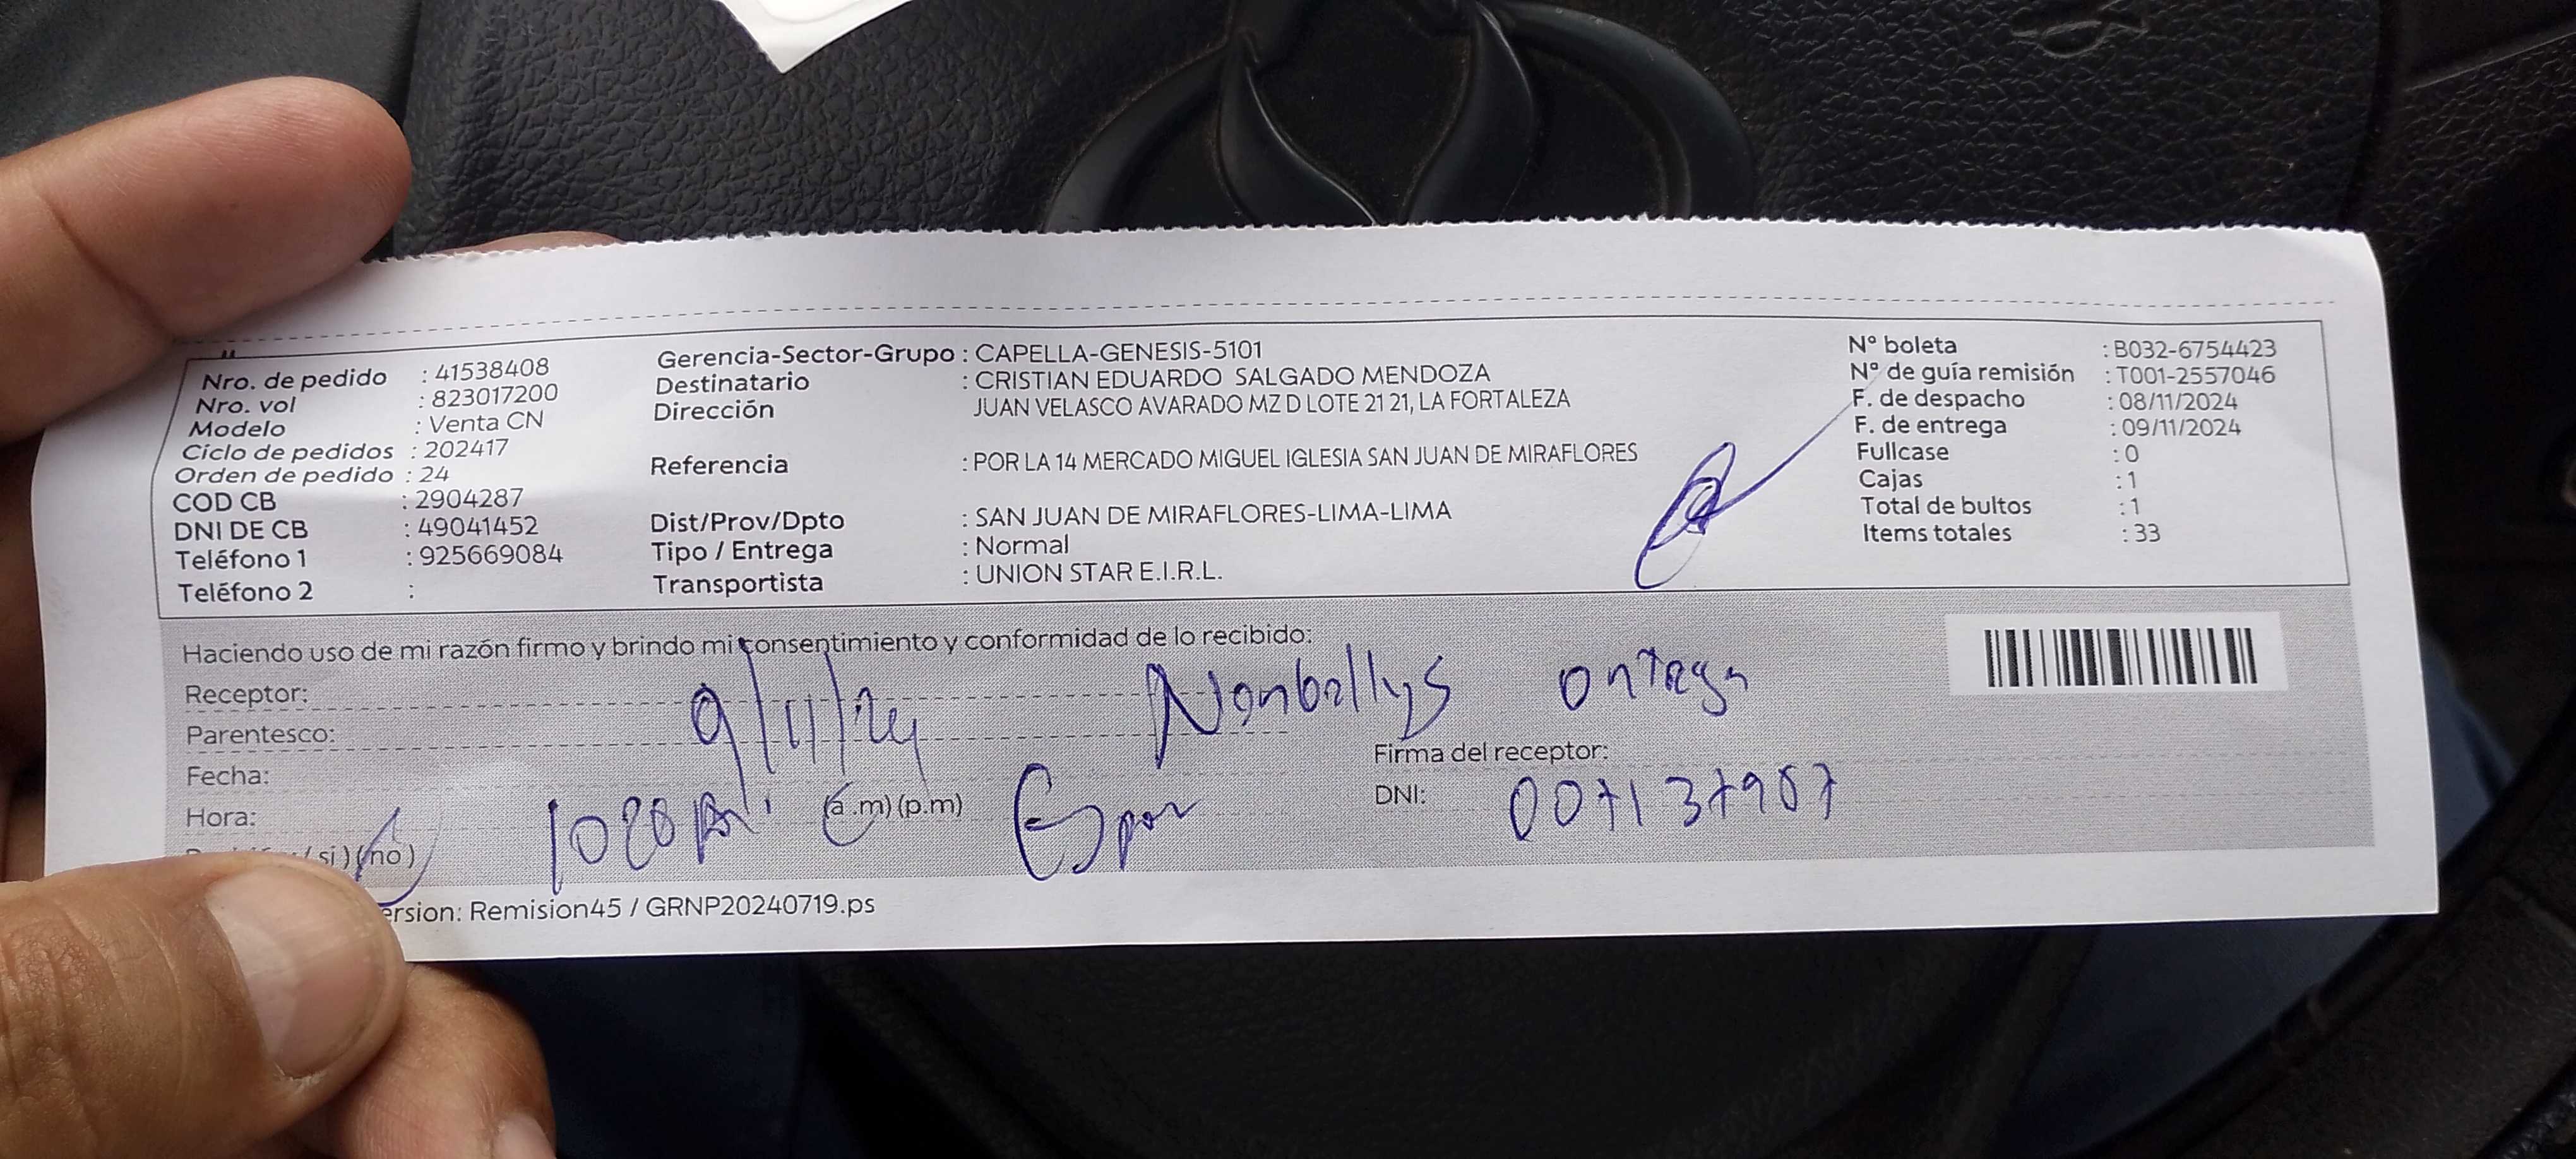 Nro. de pedido : 41538408
Nro. vol : 823017200
Modelo : Venta CN
Ciclo de pedidos : 202417
Orden de pedido : 24
COD CB : 2904287
DNI DE CB : 49041452
Teléfono 1 : 925669084
Teléfono 2 :
Gerencia-Sector-Grupo : CAPELLA-GENESIS-5101
Destinatario : CRISTIAN EDUARDO SALGADO MENDOZA
Dirección JUAN VELASCO AVARADO MZ D LOTE 21 21, LA FORTALEZA
Referencia : POR LA 14 MERCADO MIGUEL IGLESIA SAN JUAN DE MIRAFLORES
Dist/Prov/Dpto : SAN JUAN DE MIRAFLORES-LIMA-LIMA
Tipo / Entrega : Normal
Transportista : UNION STAR E.I.R.L.
N° boleta : B032-6754423
N° de guía remisión : T001-2557046
F. de despacho : 08/11/2024
F. de entrega : 09/11/2024
Fullcase : 0
Cajas : 1
Total de bultos : 1
Items totales : 33
Haciendo uso de mi razón firmo y brindo mi consentimiento y conformidad de lo recibido:
Receptor:
Parentesco:
9/11/24
Fecha:
Hora: (a.m) (p.m)
si) (no)
Firma del receptor:
DNI: 007137907
ersion: Remision45 / GRNP20240719.ps